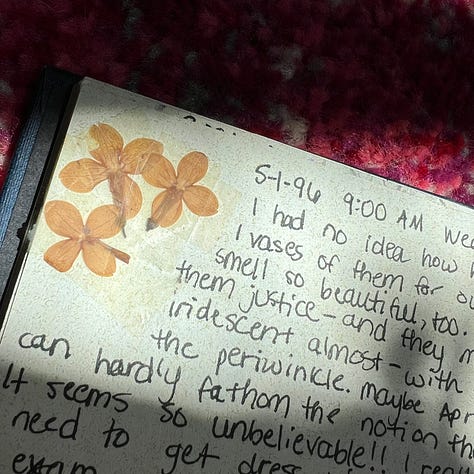 5-1-96 9:00 AM Wed
I had no idea how
vases of them for
smell so beautiful, too
them justice - and they
iridescent almost - with
the periwinkle. maybe
can hardly fathom the notion
It seems so unbelievable!! I
need to get
exam